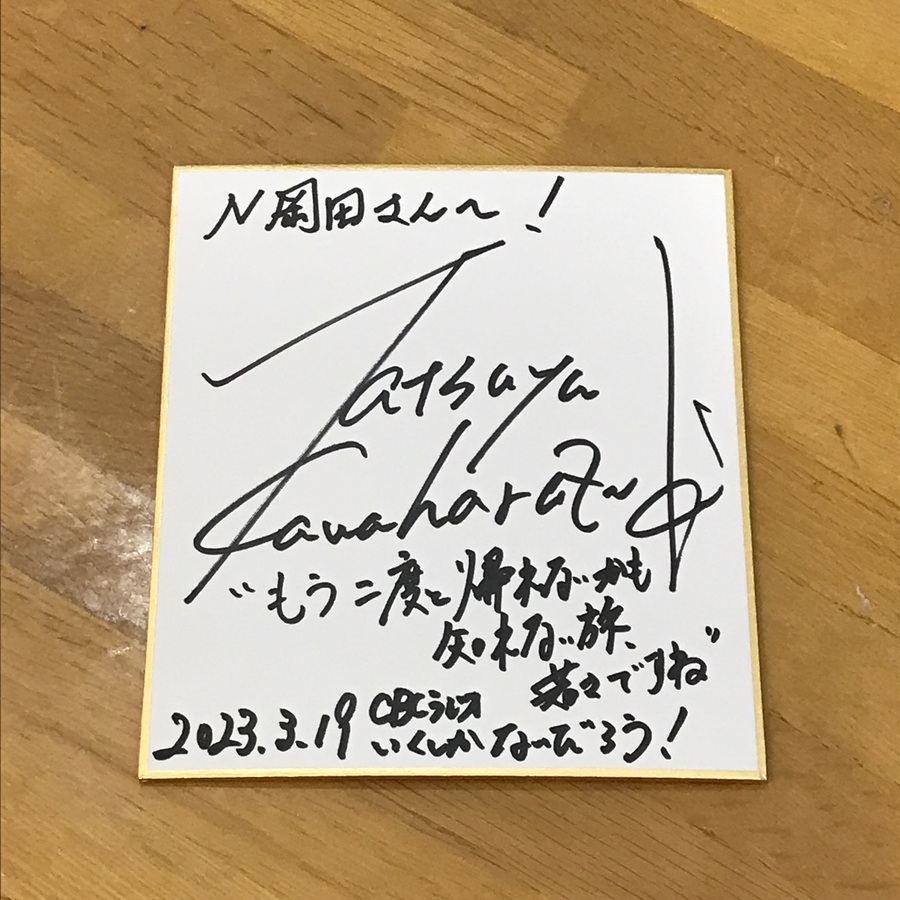 N岡田さんへ!
Tatsuya
Kawahara
"もう二度と帰れないかも
知れない旅、
"
2023.3.19 CBCラジオ
いくしかないだろう!